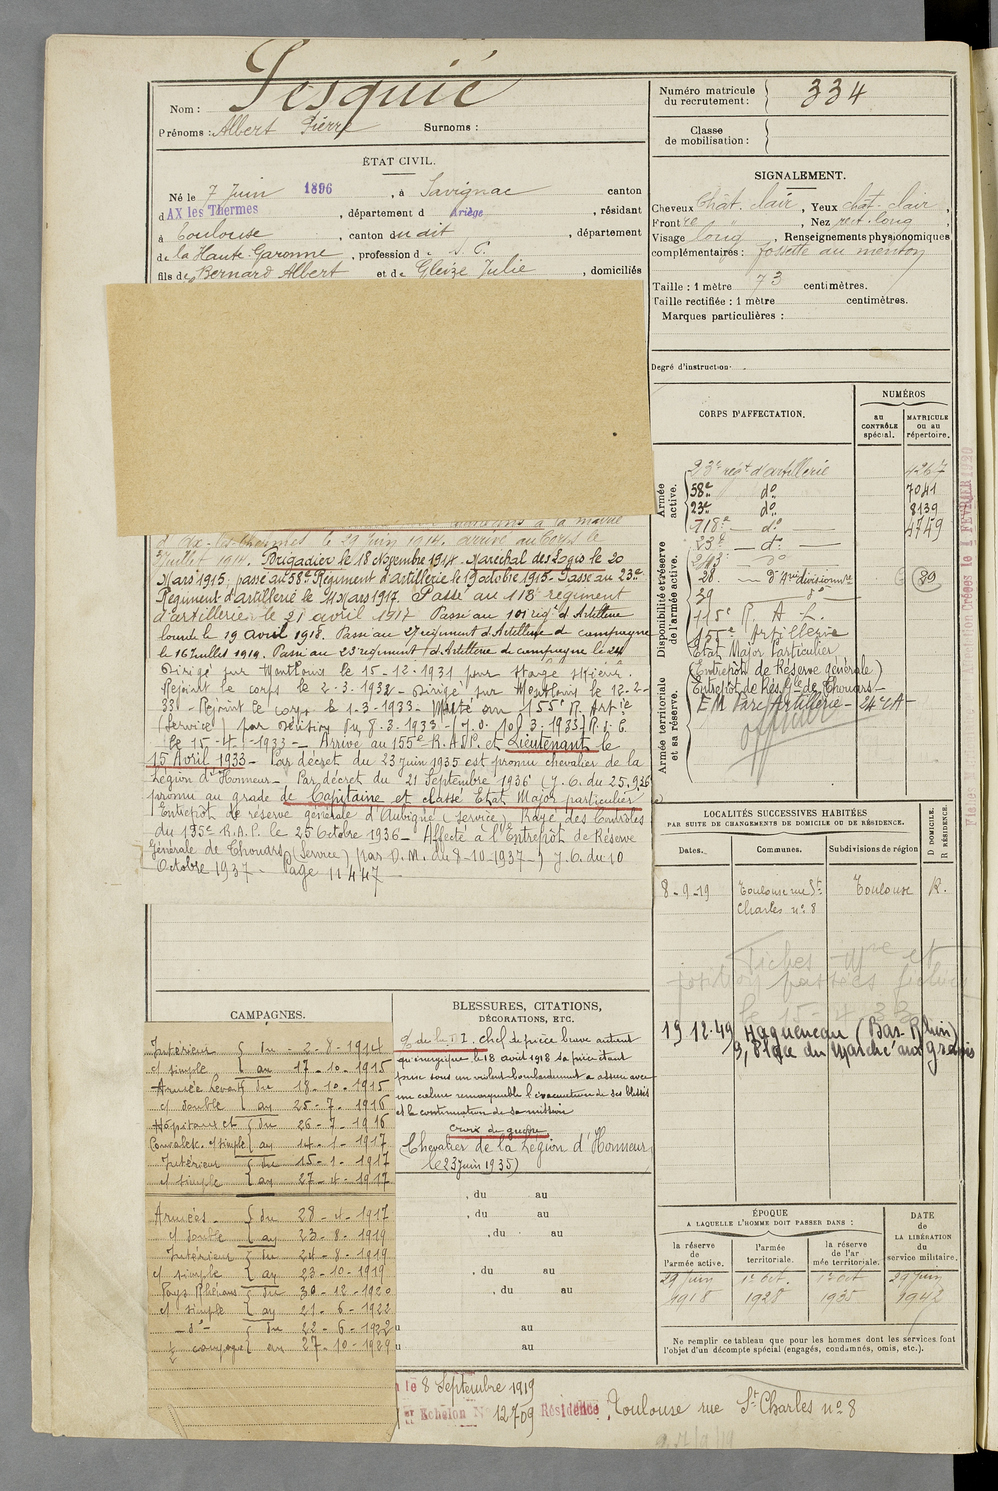 Nom : Pesquié
Prénoms : Albert Pierre Surnoms :
ÉTAT CIVIL.
Né le 7 Juin 1896, à Savignac canton
d AX les Thermes, département d Ariège, résidant
à Toulouse, canton du dit, département
de la Haute-Garonne, profession de S. C.
fils de Bernard Albert et de Gleize Julie, domiciliés
à la mairie
d'Ax-les-thermes le 29 Juin 1914. arrivé au Corps le
Juillet 1914. Brigadier le 18 Novembre 1914. Maréchal des Logis le 20
Mars 1915, passé au 58e Régiment d'artillerie le 19 octobre 1915. Passé au 23e
Régiment d'artillerie le 4 Mars 1917. Passé au 118e régiment
d'artillerie le 21 avril 1917 Passé au 101 régt d'Artillerie
lourde le 19 avril 1918. Passé au 27 régiment d'Artillerie de campagne
le 16 Juillet 1919. Passé au 23 régiment d'Artillerie de campagne le 24
Dirigé sur Montlouis le 15-12-1931 pour stage skieur.
Rejoint le corps le 2-3-1932 - Dirigé sur Montlouis le 12-2-
33 - Rejoint le corps le 1-3-1933 - Muté au 155e R. Artie
(Service) par décision du 8-3-1933 - (J.O. 10/3-1933) R.d.C.
le 15-4-1933 - Arrivé au 155e R.A.P. et Lieutenant le
15 Avril 1933 - Par décret du 23 juin 1935 est promu chevalier de la
Légion d'Honneur - Par décret du 21 Septembre 1936 (J.O. du 25.9.36
promu au grade de Capitaine et classé Etat Major particulier
Entrepôt de réserve générale d'Aubigné (service). Rayé des Contrôles
du 155e R.A.P. le 25 Octobre 1936 - Affecté à l'Entrepôt de Réserve
Générale de Thouars (Service) par D.M. du 8-10-1937 - J.O. du 10
Octobre 1937 - Page 11447
CAMPAGNES.
Intérieur du 2-8-1914
c/ simple au 17-10-1915
Armée Levant du 18-10-1915
c/ double au 25-7-1916
Hôpitaux et du 26-7-1916
Convalesc. c/ simple au 14-1-1917
Intérieur du 15-1-1917
c/ simple au 27-4-1917
Armées du 28-4-1917
c/ double au 23-8-1919
Intérieur du 24-8-1919
c/ simple au 23-10-1919
Pays Rhénans du 30-12-1920
c/ simple au 21-6-1922
- d° - du 22-6-1922
½ campagne au 27-10-1929
BLESSURES, CITATIONS,
DÉCORATIONS, ETC.
chef de pièce brave autant
qu'énergique le 18 avril 1918 sa pièce étant
prise sous un violent bombardement a assuré avec
un calme remarquable l'évacuation de ses blessés
et la continuation de sa mission
Croix de guerre
Chevalier de la Légion d'Honneur
le 23 Juin 1935)
, du au
, du au
, du au
, du au
, du au
au
au
le 8 Septembre 1919
Echelon N° 12709 Résidence, Toulouse rue St Charles n° 8
Numéro matricule
du recrutement : 334
Classe
de mobilisation :
SIGNALEMENT.
Cheveux Chât. clair, Yeux chât. clair,
Front, Nez rect. long
Visage long, Renseignements physionomiques
complémentaires : fossette au menton
Taille : 1 mètre 73 centimètres.
Taille rectifiée : 1 mètre centimètres.
Marques particulières :
Degré d'instruction
CORPS D'AFFECTATION.
NUMÉROS
au
CONTRÔLE
spécial.
MATRICULE
ou au
répertoire.
Armée
active.
23e regt d'artillerie 4267
58e d° 7041
23e d° 8139
118e d° 4749
Disponibilité et réserve
de l'armée active.
23e d°
d°
28. d° Aie divisionre 89
39 d°
115e R. A. L.
155e Artillerie
Armée territoriale
et sa réserve.
Etat Major Particulier
(Entrepôt de Réserve générale)
(Entrepôt de Rés. Gle de Thouars -
E M Parc Artillerie - 24e CA -
officier
LOCALITÉS SUCCESSIVES HABITÉES
PAR SUITE DE CHANGEMENTS DE DOMICILE OU DE RÉSIDENCE.
Dates. Communes. Subdivisions de région D DOMICILE. R RÉSIDENCE.
8-9-19 Toulouse rue St Toulouse R.
Charles n° 8
Fiches Mre et
position passées fichier
le 15-4-33
19.12.49 Haguenau (Bas-Rhin)
9, Place du Marché aux grains
ÉPOQUE
A LAQUELLE L'HOMME DOIT PASSER DANS :
DATE
de
LA LIBÉRATION
du
service militaire.
la réserve
de
l'armée active.
l'armée
territoriale.
la réserve
de l'ar
mée territoriale.
29 Juin 1er Oct. 1er Oct. 29 Juin
1918 1928 1935 1942
Ne remplir ce tableau que pour les hommes dont les services font
l'objet d'un décompte spécial (engagés, condamnés, omis, etc.).